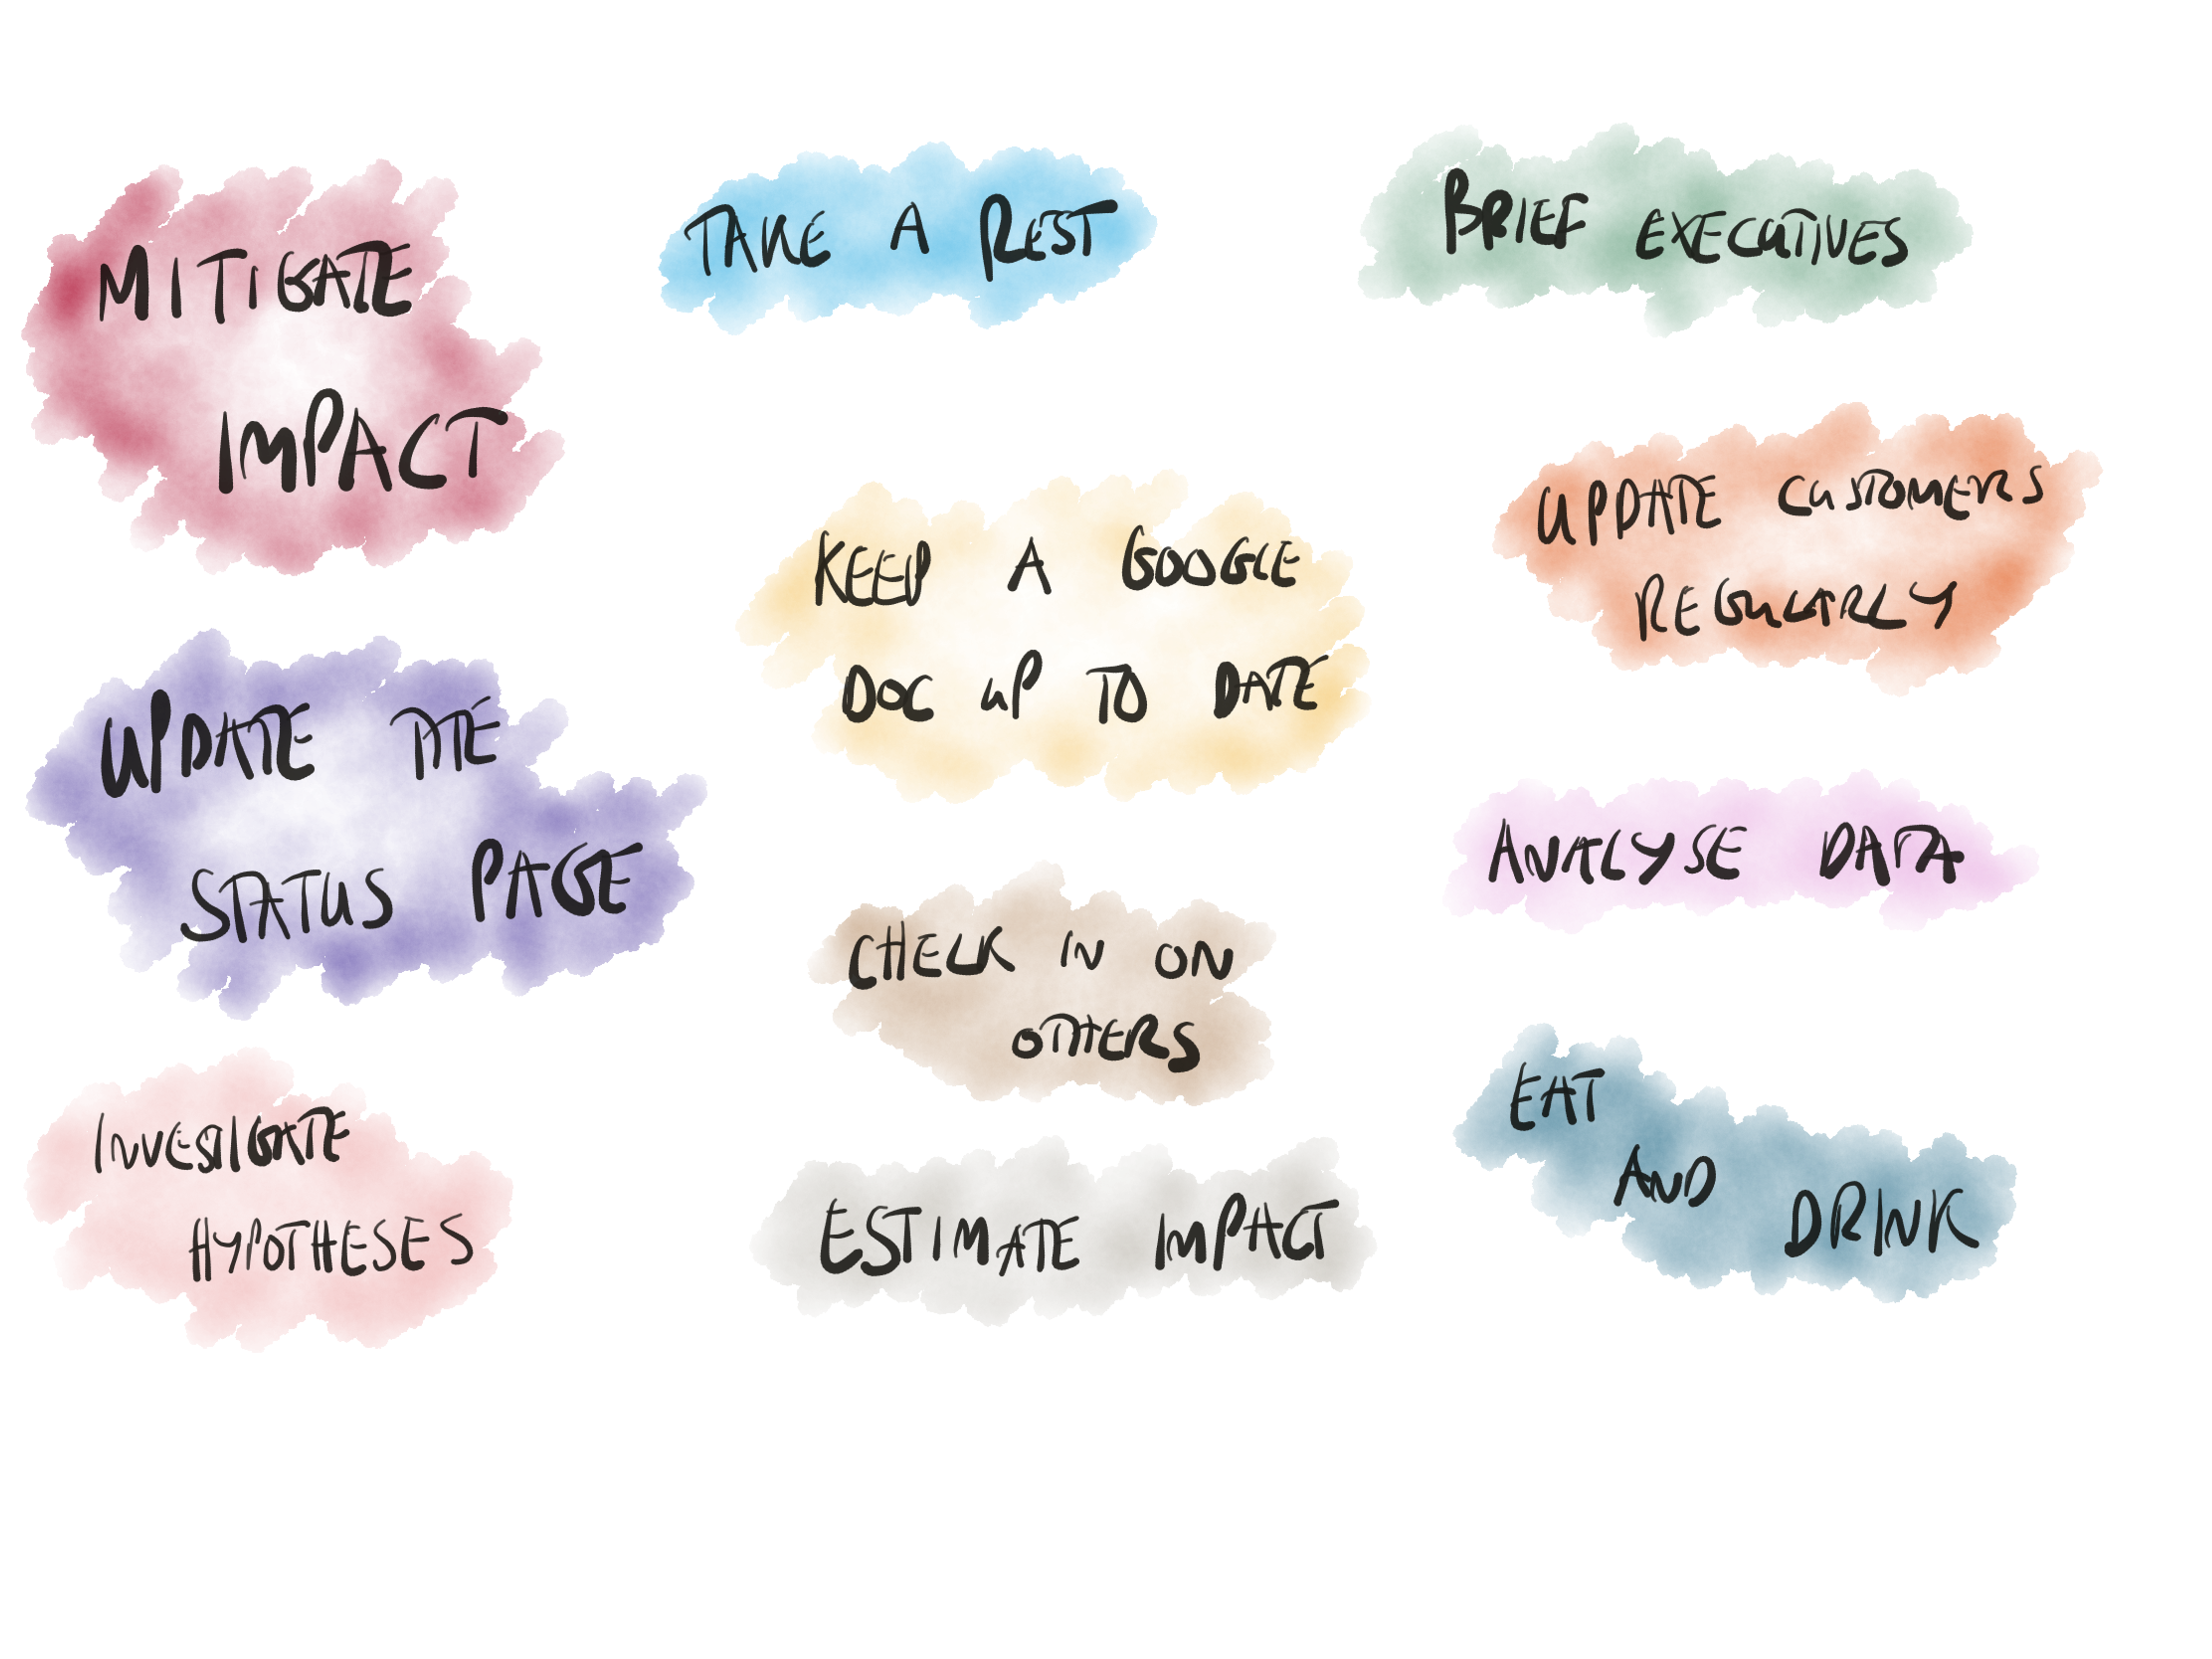 MITIGATE
IMPACT
UPDATE THE
STATUS PAGE
INVESTIGATE
HYPOTHESES
TAKE A REST
KEEP A GOOGLE
DOC UP TO DATE
CHECK IN ON
OTHERS
ESTIMATE IMPACT
BRIEF EXECUTIVES
UPDATE CUSTOMERS
REGULARLY
ANALYSE DATA
EAT
AND
DRINK